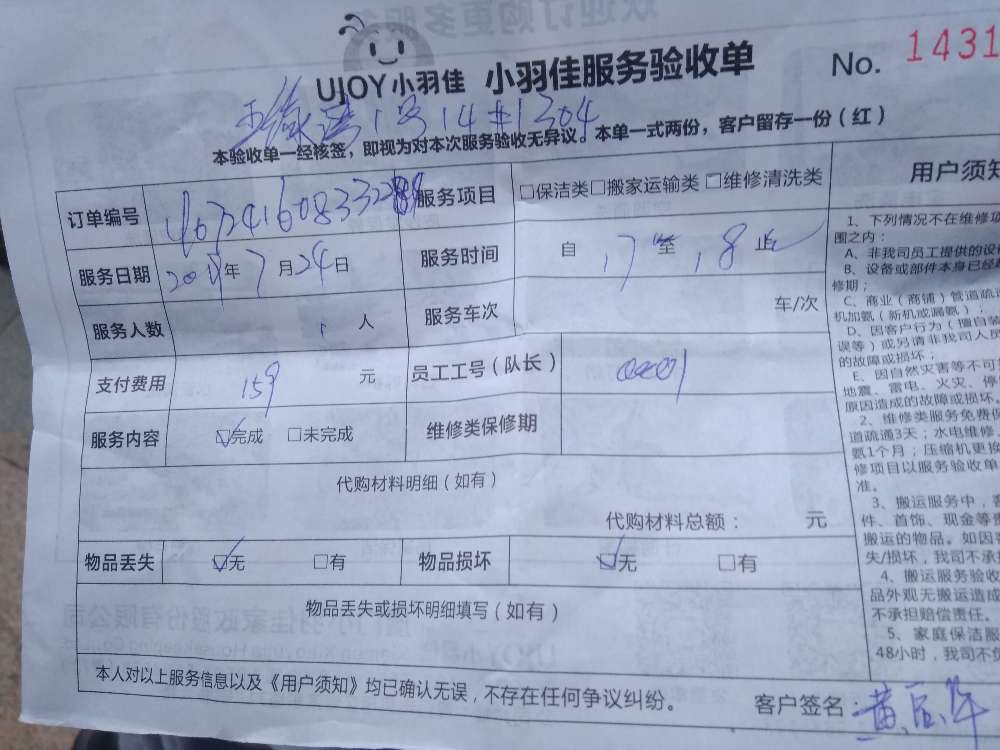 UJOY小羽佳 小羽佳服务验收单 No. 1431
1号14#1304
本验收单一经核签，即视为对本次服务验收无异议。本单一式两份，客户留存一份（红）
订单编号 服务项目 □保洁类□搬家运输类□维修清洗类
服务日期 年7月24日 服务时间 自17至18止
服务人数 1人 服务车次 车/次
支付费用 159 元 员工工号（队长） 0001
服务内容 ☑完成 □未完成 维修类保修期
代购材料明细（如有）
代购材料总额： 元
物品丢失 ☑无 □有 物品损坏 ☑无 □有
物品丢失或损坏明细填写（如有）
本人对以上服务信息以及《用户须知》均已确认无误，不存在任何争议纠纷。
客户签名：黄
用户须知
1、下列情况不在维修项
围之内：
A、非我司员工提供的设
B、设备或部件本身已经
修期；
C、商业（商铺）管道疏
机加氨（新机或漏氨），
D、因客户行为（擅自装
误等）或另请非我司人员
的故障或损坏；
E、因自然灾害等不可
地震、雷电、火灾、停
原因造成的故障或损坏。
2、维修类服务免费保
道疏通3天；水电维修
氨1个月；压缩机更换
修项目以服务验收单
准。
3、搬运服务中，客
件、首饰、现金等贵
搬运的物品。如因客
失/损坏，我司不承
4、搬运服务验收
品外观无搬运造成
不承担赔偿责任。
5、家庭保洁服
48小时，我司不负